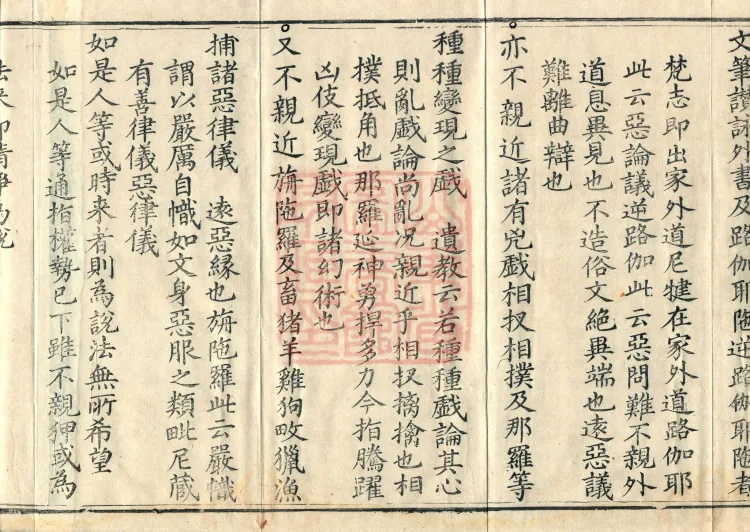 文筆讃詠外書及路伽耶陁逆路伽耶陁者
梵志即出家外道尼犍在家外道路伽耶
此云惡論議逆路伽此云惡問難不親外
道息異見也不造俗文絶異端也遠惡議
難離曲辯也
亦不親近諸有兇戲相扠相撲及那羅等
種種變現之戲　遺教云若種種戲論其心
則亂戲論尚亂况親近乎相扠摛擒也相
撲抵角也那羅延神勇捍多力今指騰躍
凶伎變現戲即諸幻術也
又不親近旃陁羅及畜猪羊雞狗畋獵漁
捕諸惡律儀　遠惡縁也旃陁羅此云嚴幟
謂以嚴厲自幟如文身惡服之類毗尼蔵
有善律儀惡律儀
如是人等或時来者則為說法無所希望
如是人等通指權勢已下雖不親狎或為